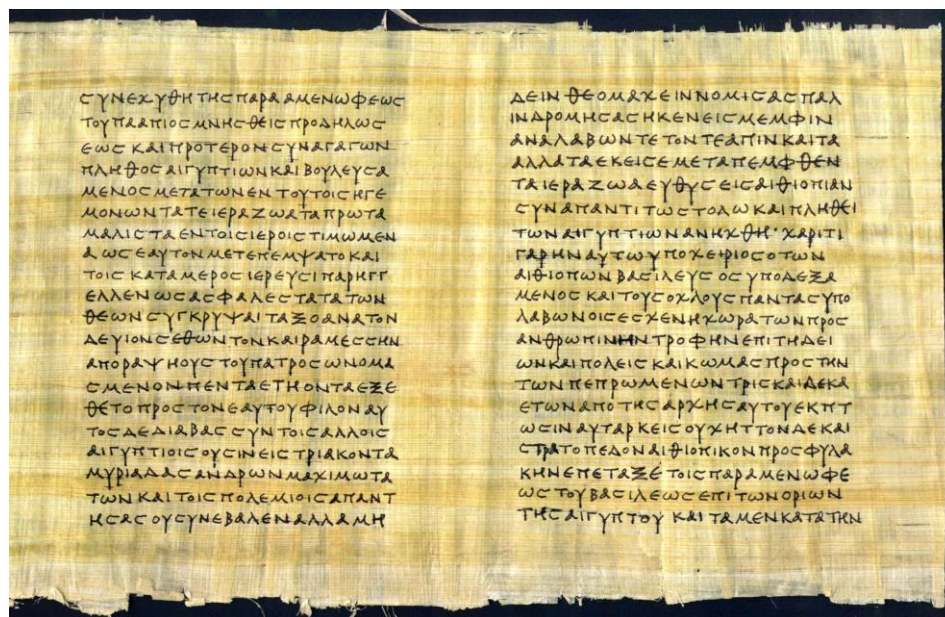 ϹΥΝΕΧΥΘΗΤΗϹΠΑΡΑΑΜΕΝΩΦΕΩϹ
ΤΟΥΠΑΑΠΙΟϹΜΝΗϹΘΕΙϹΠΡΟΔΗΛΩϹ
ΕΩϹΚΑΙΠΡΟΤΕΡΟΝϹΥΝΑΓΑΓΩΝ
ΠΛΗΘΟϹΑΙΓΥΠΤΙΩΝΚΑΙΒΟΥΛΕΥϹΑ
ΜΕΝΟϹΜΕΤΑΤΩΝΕΝΤΟΥΤΟΙϹΗΓΕ
ΜΟΝΩΝΤΑΤΕΙΕΡΑΖΩΑΤΑΠΡΩΤΑ
ΜΑΛΙϹΤΑΕΝΤΟΙϹΙΕΡΟΙϹΤΙΜΩΜΕΝ
ΑΩϹΕΑΥΤΟΝΜΕΤΕΠΕΜΨΑΤΟΚΑΙ
ΤΟΙϹΚΑΤΑΜΕΡΟϹΙΕΡΕΥϹΙΠΑΡΗΓΓ
ΕΛΛΕΝΩϹΑϹΦΑΛΕϹΤΑΤΑΤΩΝ
ΘΕΩΝϹΥΓΚΡΥΨΑΙΤΑΞΟΑΝΑΤΟΝ
ΔΕΥΙΟΝϹΕΘΩΝΤΟΝΚΑΙΡΑΜΕϹϹΗΝ
ΑΠΟΡΑΨΗΟΥϹΤΟΥΠΑΤΡΟϹΩΝΟΜΑ
ϹΜΕΝΟΝΠΕΝΤΑΕΤΗΟΝΤΑΕΞΕ
ΘΕΤΟΠΡΟϹΤΟΝΕΑΥΤΟΥΦΙΛΟΝΑΥ
ΤΟϹΔΕΔΙΑΒΑϹϹΥΝΤΟΙϹΑΛΛΟΙϹ
ΑΙΓΥΠΤΙΟΙϹΟΥϹΙΝΕΙϹΤΡΙΑΚΟΝΤΑ
ΜΥΡΙΑΔΑϹΑΝΔΡΩΝΜΑΧΙΜΩΤΑ
ΤΩΝΚΑΙΤΟΙϹΠΟΛΕΜΙΟΙϹΑΠΑΝΤ
ΗϹΑϹΟΥϹΥΝΕΒΑΛΕΝΑΛΛΑΜΗ
ΔΕΙΝΘΕΟΜΑΧΕΙΝΝΟΜΙϹΑϹΠΑΛ
ΙΝΔΡΟΜΗϹΑϹΗΚΕΝΕΙϹΜΕΜΦΙΝ
ΑΝΑΛΑΒΩΝΤΕΤΟΝΤΕΑΠΙΝΚΑΙΤΑ
ΑΛΛΑΤΑΕΚΕΙϹΕΜΕΤΑΠΕΜΦΘΕΝ
ΤΑΙΕΡΑΖΩΑΕΥΘΥϹΕΙϹΑΙΘΙΟΠΙΑΝ
ϹΥΝΑΠΑΝΤΙΤΩϹΤΟΛΩΚΑΙΠΛΗΘΕΙ
ΤΩΝΑΙΓΥΠΤΙΩΝΑΝΗΧΘΗ·ΧΑΡΙΤΙ
ΓΑΡΗΝΑΥΤΩΥΠΟΧΕΙΡΙΟϹΟΤΩΝ
ΑΙΘΙΟΠΩΝΒΑϹΙΛΕΥϹΟϹΥΠΟΔΕΞΑ
ΜΕΝΟϹΚΑΙΤΟΥϹΟΧΛΟΥϹΠΑΝΤΑϹΥΠΟ
ΛΑΒΩΝΟΙϹΕϹΧΕΝΗΧΩΡΑΤΩΝΠΡΟϹ
ΑΝΘΡΩΠΙΝΗΝΤΡΟΦΗΝΕΠΙΤΗΔΕΙ
ΩΝΚΑΙΠΟΛΕΙϹΚΑΙΚΩΜΑϹΠΡΟϹΤΗΝ
ΤΩΝΠΕΠΡΩΜΕΝΩΝΤΡΙϹΚΑΙΔΕΚΑ
ΕΤΩΝΑΠΟΤΗϹΑΡΧΗϹΑΥΤΟΥΕΚΠΤ
ΩϹΙΝΑΥΤΑΡΚΕΙϹΟΥΧΗΤΤΟΝΔΕΚΑΙ
ϹΤΡΑΤΟΠΕΔΟΝΑΙΘΙΟΠΙΚΟΝΠΡΟϹΦΥΛΑ
ΚΗΝΕΠΕΤΑΞΕΤΟΙϹΠΑΡΑΜΕΝΩΦΕ
ΩϹΤΟΥΒΑϹΙΛΕΩϹΕΠΙΤΩΝΟΡΙΩΝ
ΤΗϹΑΙΓΥΠΤΟΥ ΚΑΙΤΑΜΕΝΚΑΤΑΤΗΝ